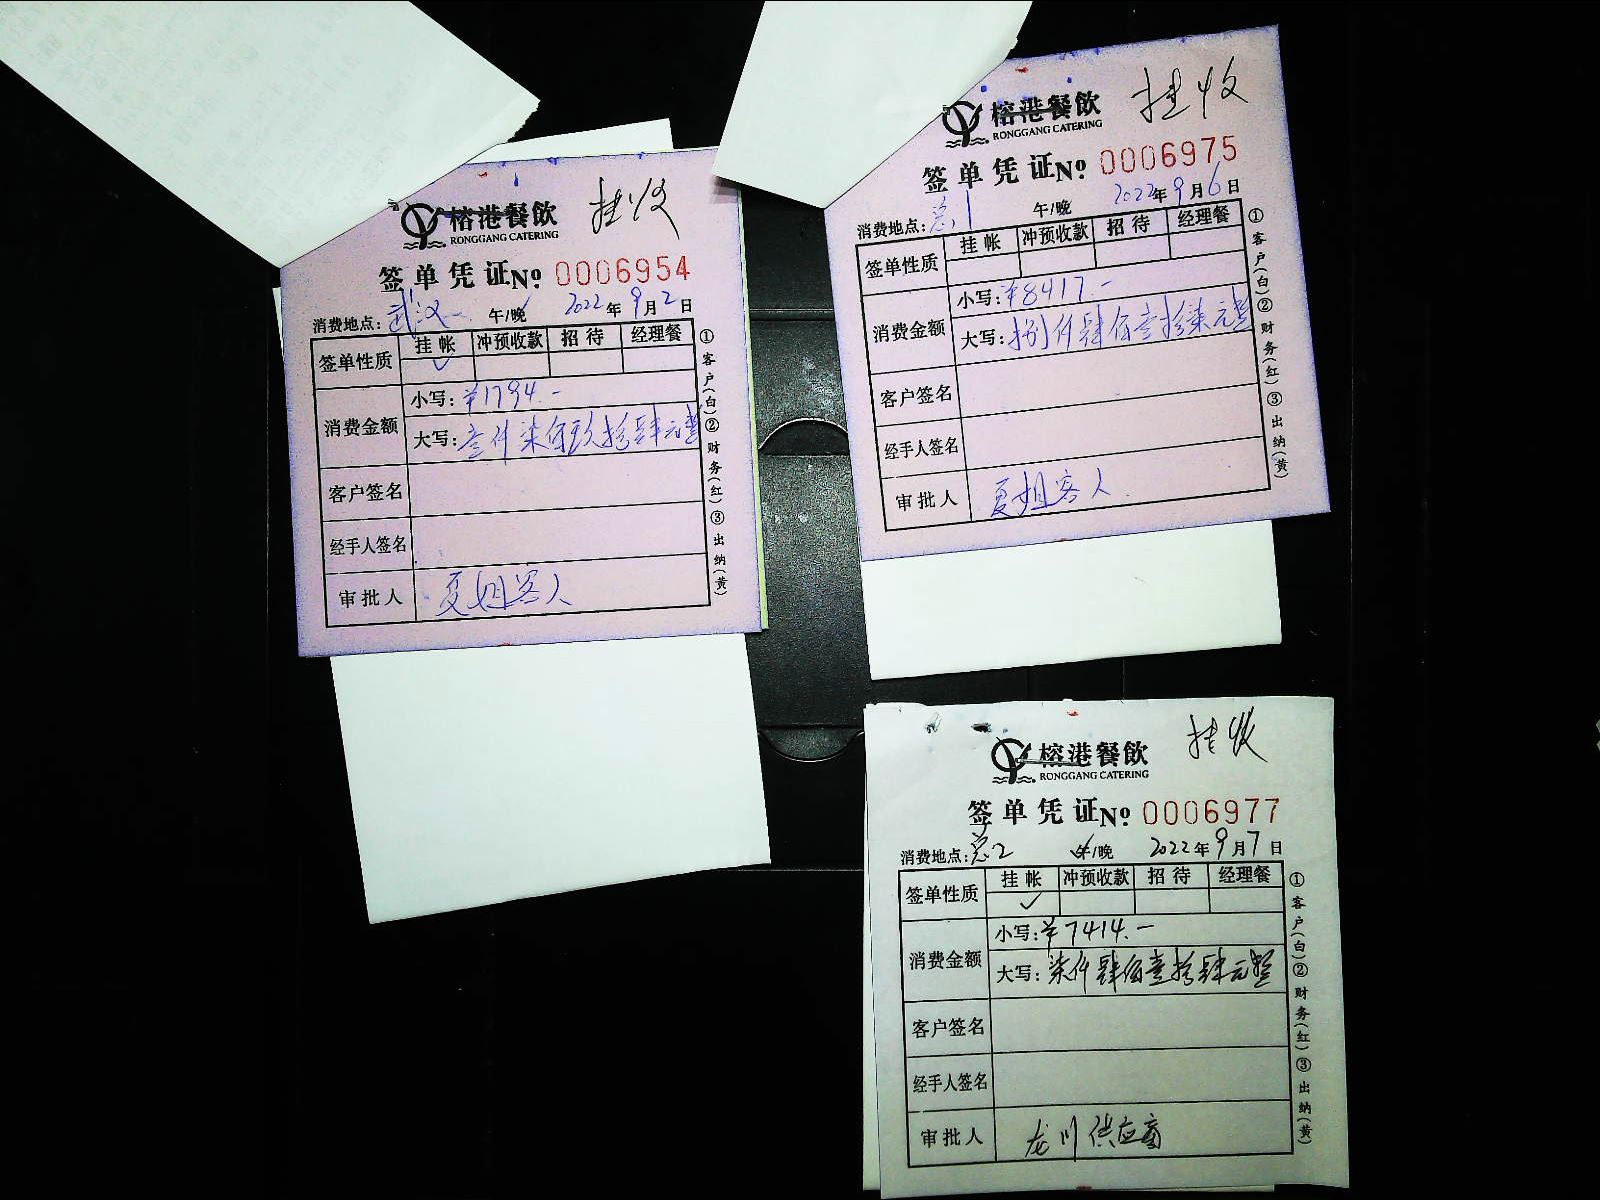 挂收
榕港餐飲
RONGGANG CATERING
签单凭证№ 0006954
消费地点: 武汉 午/晚 2022年9月2日
签单性质 挂帐 冲预收款 招待 经理餐
✓
消费金额 小写: ¥1794.-
大写: 壹仟柒佰玖拾肆元整
客户签名
经手人签名
审批人 夏姐客人
①客户(白)②财务(红)③出纳(黄)
挂收
榕港餐飲
RONGGANG CATERING
签单凭证№ 0006975
消费地点: 总1 午/晚 2022年9月6日
签单性质 挂帐 冲预收款 招待 经理餐
消费金额 小写: ¥8417.-
大写: 捌仟肆佰壹拾柒元整
客户签名
经手人签名
审批人 夏姐客人
①客户(白)②财务(红)③出纳(黄)
挂收
榕港餐飲
RONGGANG CATERING
签单凭证№ 0006977
消费地点: 总2 午/晚 2022年9月7日
签单性质 挂帐 冲预收款 招待 经理餐
✓
消费金额 小写: ¥7414.-
大写: 柒仟肆佰壹拾肆元整
客户签名
经手人签名
审批人 龙川供应商
①客户(白)②财务(红)③出纳(黄)